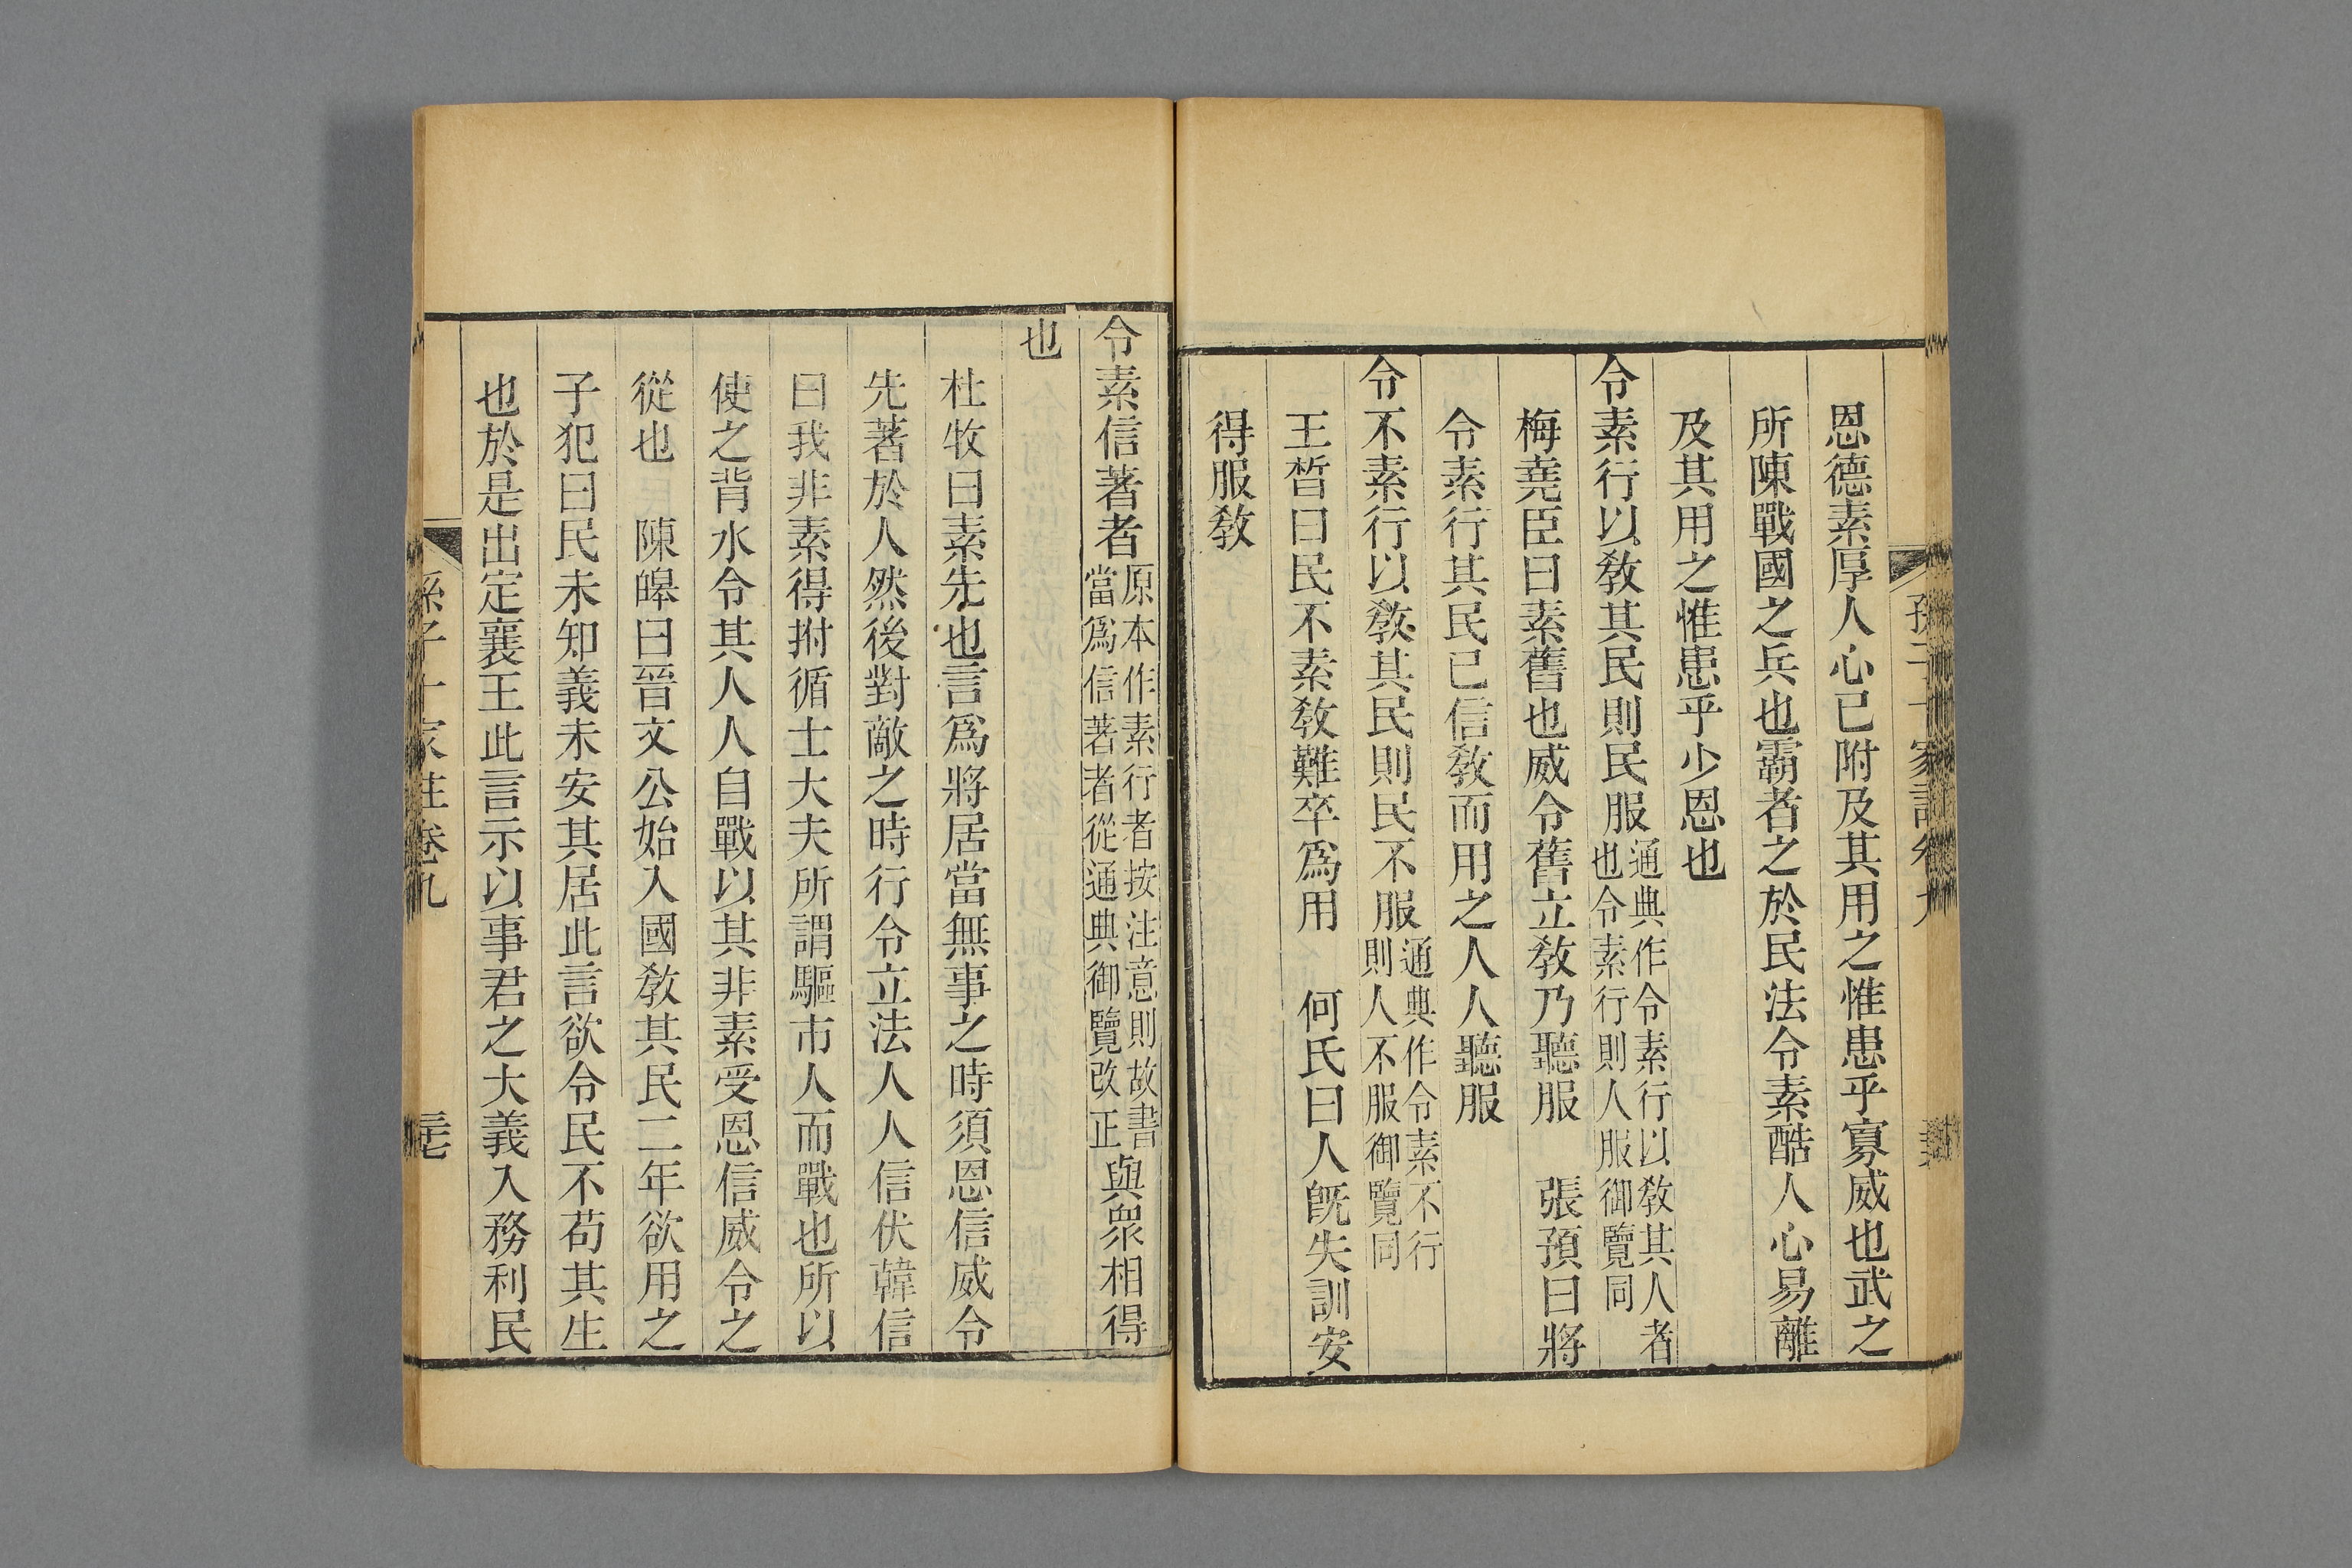 恩德素厚人心已附及其用之惟患乎寡威也武之
所陳戰國之兵也霸者之於民法令素酷人心易離
及其用之惟患乎少恩也
令素行以敎其民則民服通典作令素行以敎其人者也令素行則人服御覽同
梅堯臣曰素舊也威令舊立敎乃聽服　張預曰將
令素行其民已信敎而用之人人聽服
令不素行以敎其民則民不服通典作令素不行則人不服御覽同
王晳曰民不素敎難卒爲用　何氏曰人旣失訓安
得服敎
令素信著者原本作素行者按注意則故書當爲信著者從通典御覽改正與衆相得
也
杜牧曰素先也言爲將居當無事之時須恩信威令
先著於人然後對敵之時行令立法人人信伏韓信
曰我非素得拊循士大夫所謂驅市人而戰也所以
使之背水令其人人自戰以其非素受恩信威令之
從也　陳皥曰晉文公始入國敎其民二年欲用之
子犯曰民未知義未安其居此言欲令民不苟其生
也於是出定襄王此言示以事君之大義入務利民
孫子十家註卷九